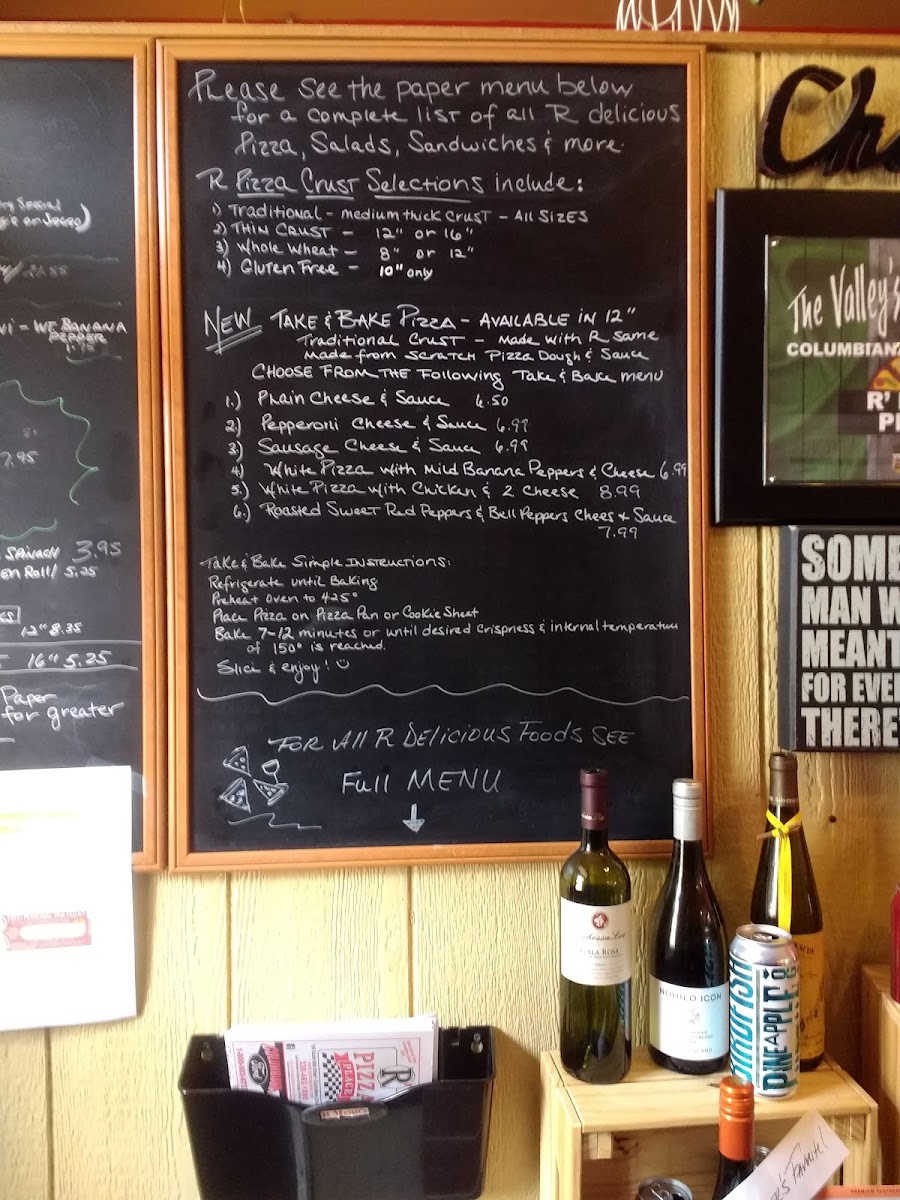 Please see the paper menu below
for a complete list of all R delicious
Pizza, Salads, Sandwiches & more.
R Pizza Crust Selections include:
1) Traditional - medium thick crust - All sizes
2) Thin Crust - 12" or 16"
3) Whole Wheat - 8" or 12"
4) Gluten Free - 10" only
NEW Take & Bake Pizza - Available in 12"
Traditional Crust - made with R same
made from scratch Pizza Dough & Sauce
Choose from the following Take & Bake menu
1.) Plain Cheese & Sauce 6.50
2.) Pepperoni Cheese & Sauce 6.99
3.) Sausage Cheese & Sauce 6.99
4.) White Pizza with Mild Banana Peppers & Cheese 6.99
5.) White Pizza with Chicken & 2 Cheese 8.99
6.) Roasted Sweet Red Peppers & Bell Peppers Chees + Sauce
7.99
Take & Bake Simple Instructions:
Refrigerate until Baking
Preheat oven to 425°
Place Pizza on Pizza Pan or Cookie Sheet
Bake 7-12 minutes or until desired crispness & internal temperature
of 150° is reached.
Slice & enjoy!
For All R Delicious Foods See
Full MENU
WE BANANA
PEPPER
7.95
3.95
en Roll/ 5.25
12" 8.35
16" 5.25
Paper
for greater
Che
The Valley's
COLUMBIANA
R'
SOME
MAN W
MEANT
FOR EVE
THERE'
NOBILO ICON
PINEAPPLE
R
PIZZA
PLACE
Favorite!